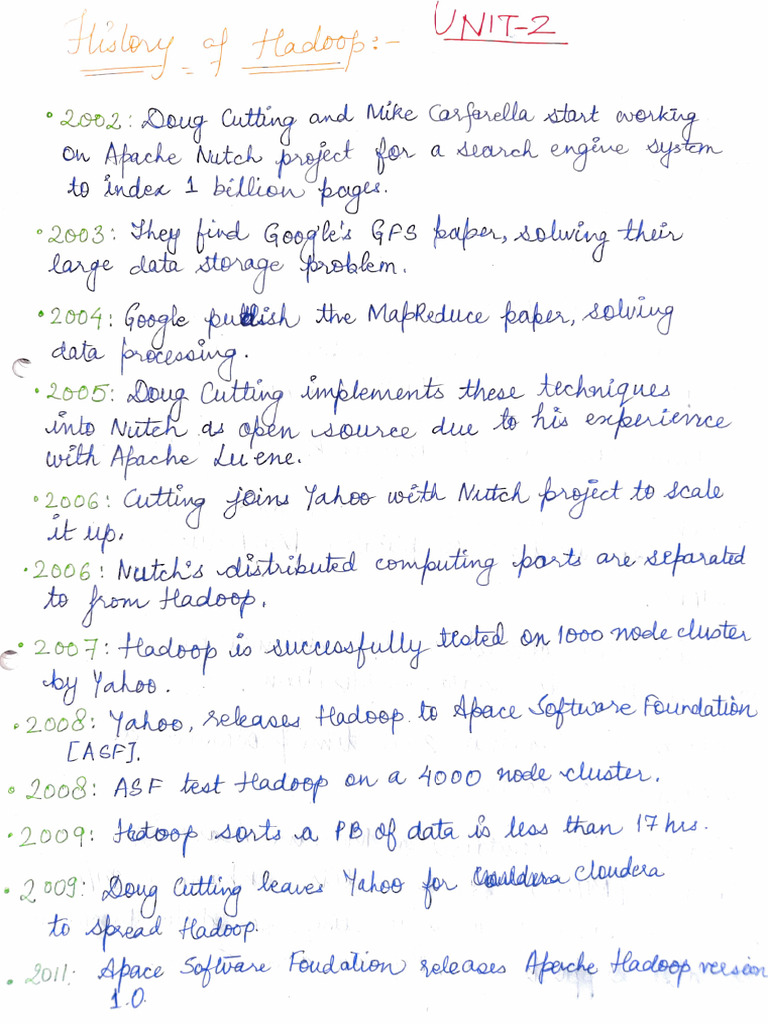 History of Hadoop:- UNIT-2
• 2002: Doug Cutting and Mike Carfarella start working
on Apache Nutch project for a search engine system
to index 1 billion pages.
• 2003: They find Google's GFS paper, solving their
large data storage problem.
• 2004: Google publish the MapReduce paper, solving
data processing.
• 2005: Doug Cutting implements these techniques
into Nutch as open source due to his experience
with Apache Lu ene.
• 2006: Cutting joins Yahoo with Nutch project to scale
it up.
• 2006: Nutch's distributed computing parts are separated
to from Hadoop.
• 2007: Hadoop is successfully tested on 1000 node cluster
by Yahoo.
• 2008: Yahoo, releases Hadoop to Apace Software Foundation
[ASF].
• 2008: ASF test Hadoop on a 4000 node cluster.
• 2009: Hadoop sorts a PB of data is less than 17 hrs.
• 2009: Doug Cutting leaves Yahoo for Cloudera
to spread Hadoop.
• 2011: Apace Software Foudation releases Apache Hadoop version
1.0.